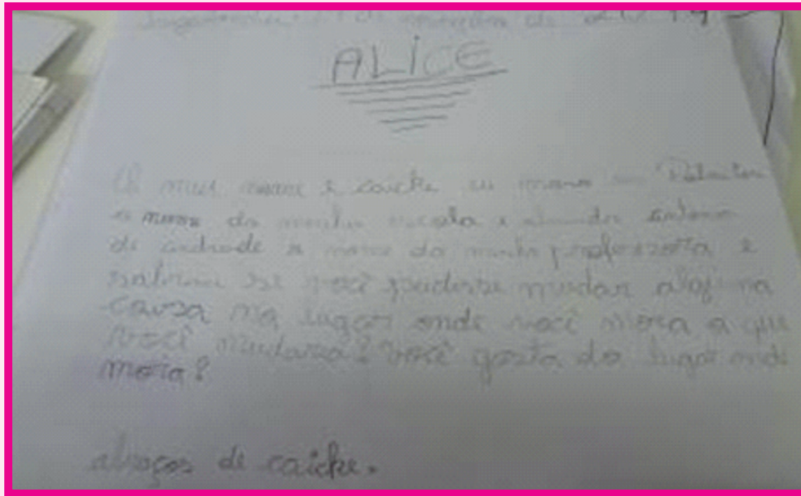 ALICE
O meu nome é caicke eu moro em
o nome da minha escola é antonio
de andrade o nome da minha professora é
sabrina se você pudesse mudar alguma
cousa no lugar onde você mora o que
você mudaria? você gosta do lugar onde
mora?
abraços de caicke.